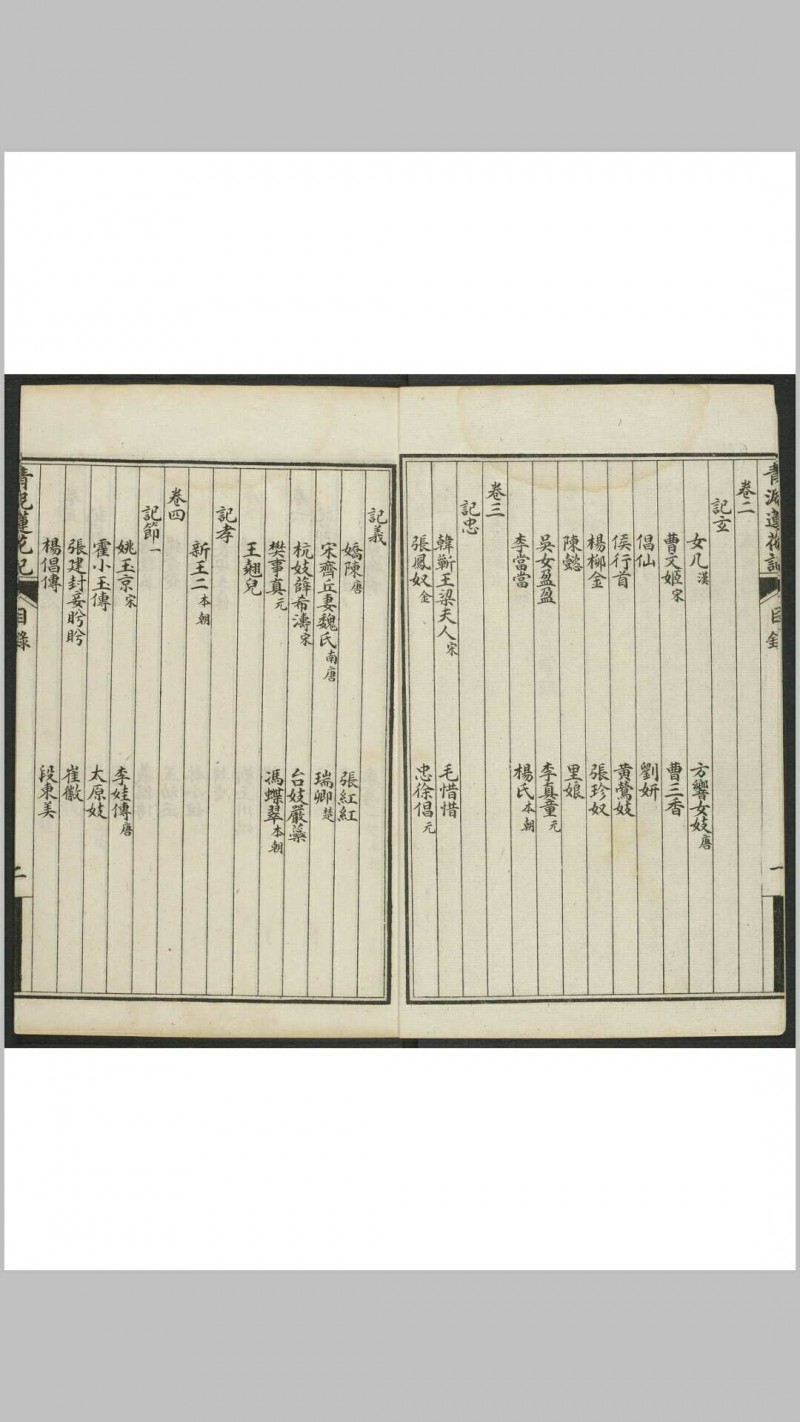 卷二
記玄
女几 漢 方響女妓 唐
曹文姬 宋 曹三香
倡仙 劉妍
侯行首 黃鶯妓
楊柳金 張珍奴
陳懿 里娘
吳女盈盈 李真童 元
李當當 楊氏 本朝
卷三
記忠
韓蘄王梁夫人 宋 毛惜惜
張鳳奴 金 忠徐倡 元
目錄
一
記義
嬌陳 唐 張紅紅
宋齊丘妻魏氏 南唐 瑞卿 楚
杭妓薛希濤 宋 台妓嚴蘂
樊事真 元 馮蝶翠 本朝
王翹兒
記孝
新王二 本朝
卷四
記節一
姚玉京 宋 李娃傳 唐
霍小玉傳 太原妓
張建封妾盼盼 崔徽
楊倡傳 段東美
青泥蓮花記
目錄
二